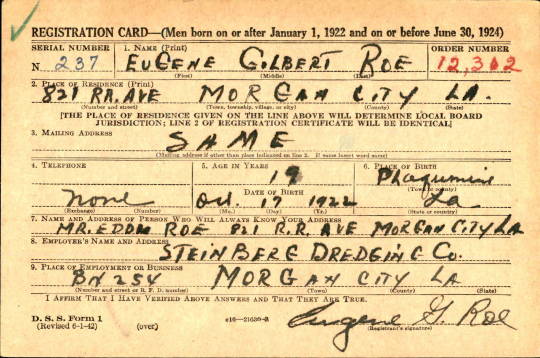 REGISTRATION CARD—(Men born on or after January 1, 1922 and on or before June 30, 1924)
SERIAL NUMBER 1. NAME (Print) ORDER NUMBER
N 237 EUGENE GILBERT ROE 12,302
(First) (Middle) (Last)
2. PLACE OF RESIDENCE (Print)
821 RR. AVE MORGAN CITY LA.
(Number and street) (Town, township, village, or city) (County) (State)
[THE PLACE OF RESIDENCE GIVEN ON THE LINE ABOVE WILL DETERMINE LOCAL BOARD
JURISDICTION; LINE 2 OF REGISTRATION CERTIFICATE WILL BE IDENTICAL]
3. MAILING ADDRESS
SAME
(Mailing address if other than place indicated on line 2. If same insert word same)
4. TELEPHONE 5. AGE IN YEARS 6. PLACE OF BIRTH
19 Plaquemine
(Town or county)
DATE OF BIRTH
none Oct. 17 1922 La
(Exchange) (Number) (Mo.) (Day) (Yr.) (State or country)
7. NAME AND ADDRESS OF PERSON WHO WILL ALWAYS KNOW YOUR ADDRESS
MR. EDDIE ROE 821 R.R. AVE MORGAN CITY LA
8. EMPLOYER'S NAME AND ADDRESS
STEINBERG DREDGING CO.
9. PLACE OF EMPLOYMENT OR BUSINESS
MORGAN CITY LA
(Number and street or R. F. D. number) (Town) (County) (State)
I AFFIRM THAT I HAVE VERIFIED ABOVE ANSWERS AND THAT THEY ARE TRUE.
D. S. S. Form 1
(Revised 6-1-42) (over) 16—21630-2 Eugene G. Roe
(Registrant's signature)